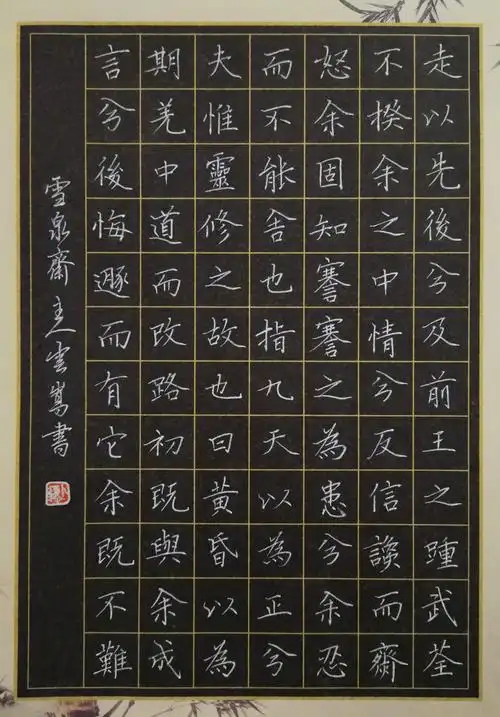 走以先後兮及前王之踵武荃
不揆余之中情兮反信讒而齋
怒余固知謇謇之為患兮余忍
而不能舍也指九天以為正兮
夫惟靈修之故也曰黃昏以為
期羌中道而改路初既與余成
言兮後悔遯而有它余既不難
雪泉齋主人雲嵩書